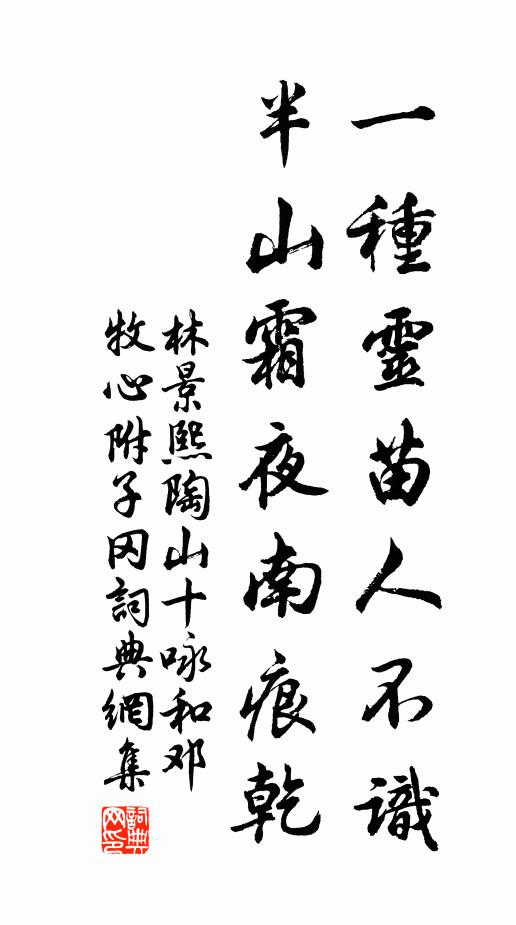 一種靈苗人不識
半山霜夜南痕乾
林景熙陶山十咏和邓
牧心附子冈詞典網集
詞典网印